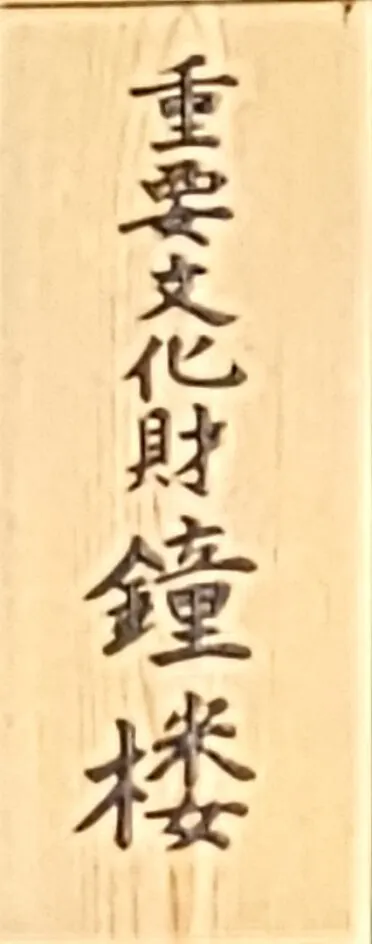 重要文化財鐘楼